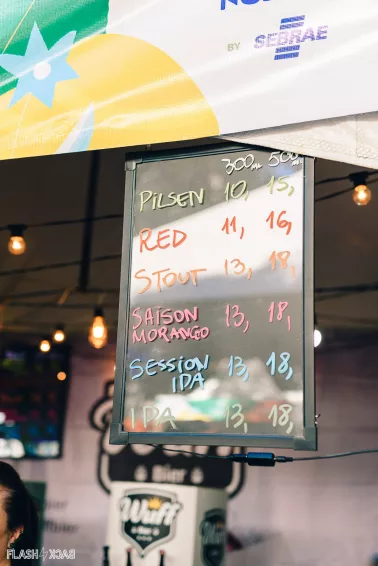 BY SEBRAE
300ml 500ml
PILSEN 10, 15,
RED 11, 16,
STOUT 13, 18,
SAISON
MORANGO 13, 18,
SESSION
IPA 13, 18,
IPA 13, 18,
Bier
Wuff
FLASH BACK